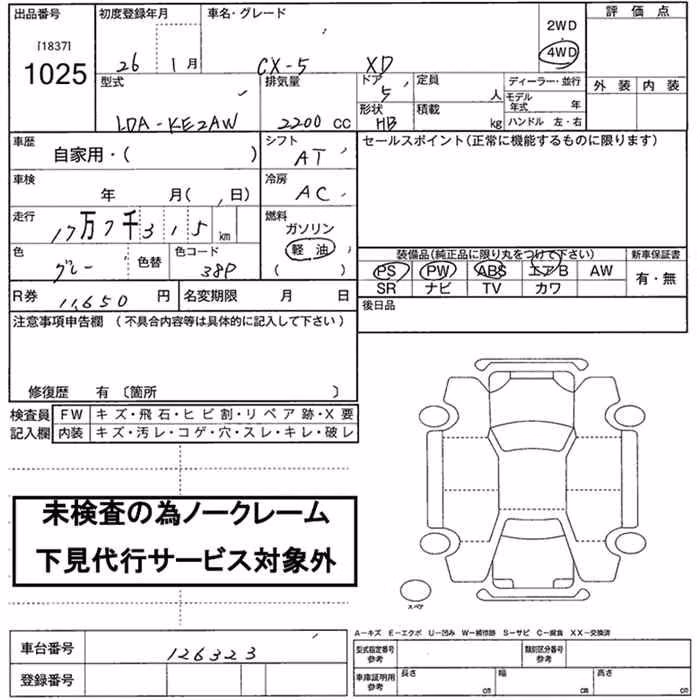 出品番号 初度登録年月 車名・グレード 評価点
[1837]
1025
26 1月 CX-5 XD
2WD
4WD
外装 内装
型式 排気量 ドア 定員 ディーラー・並行
5 人 モデル年式 年
LDA-KE2AW 2200 CC 形状 積載 ハンドル 左・右
HB kg
車歴 シフト セールスポイント(正常に機能するものに限ります)
自家用・( ) AT
車検 冷房
年 月( 、日) AC
走行 燃料
17万7千315 km ガソリン
軽油
( )
色 色替 色コード
グレー 38P
装備品(純正品に限り丸をつけて下さい) 新車保証書
PS PW ABS エアB AW 有・無
SR ナビ TV カワ
R券 11,650 円 名変期限 月 日
後日品
注意事項申告欄 (不具合内容等は具体的に記入して下さい)
修復歴 有 〔箇所 〕
検査員 FW キズ・飛石・ヒビ割・リペア跡・X要
記入欄 内装 キズ・汚レ・コゲ・穴・スレ・キレ・破レ
未検査の為ノークレーム
下見代行サービス対象外
スペア
A−キズ E−エクボ U−凹み W−補修跡 S−サビ C−腐食 XX−交換済
車台番号 126323
型式指定番号 参考 類別区分番号 参考
登録番号
車庫証明用 参考 長さ cm 幅 cm 高さ cm